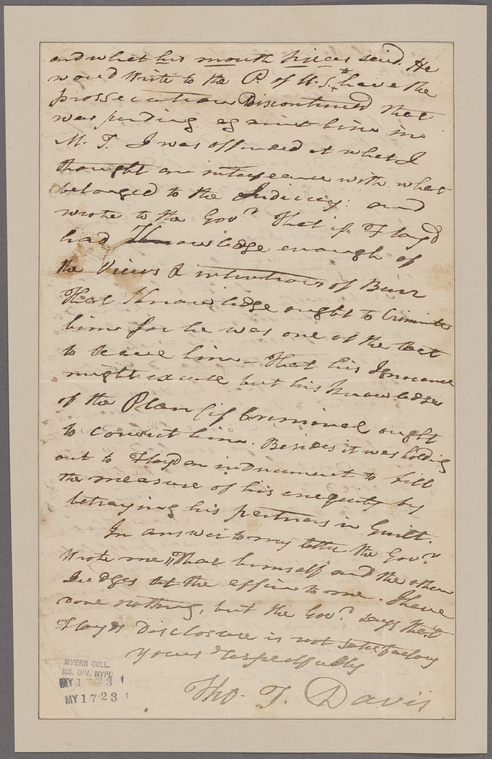 and what his mouth pieces said. He
would write to the P. of U.S. & have the
prossecution Discontinued that
was pending against him in
M. T. I was offended at what I
thought an interfeance with what
belonged to the Judiciary: and
wrote to the Govr. That if Floyd
had Knowledge enough of
the Views & intentions of Burr
That Knowledge ought to Criminate
him for he was one of the
to leave him — That his Ignorance
might excuse but his Knowledge
of the Plan (if Criminal) ought
to convict him. Besides it was holding
out to Floyd an inducement to fill
the measure of his enequity by
betraying his partners in Guilt.
In answer to my letter the Govr.
wrote me, That himself and the other
Judges the affair to me. I have
done nothing, but the Govr. says that
Floyds Disclosure is not satisfactory
Yours respectfully
Tho. T. Davis
MYERS COLL.
MS. DIV. NYPL
MY 1723 1